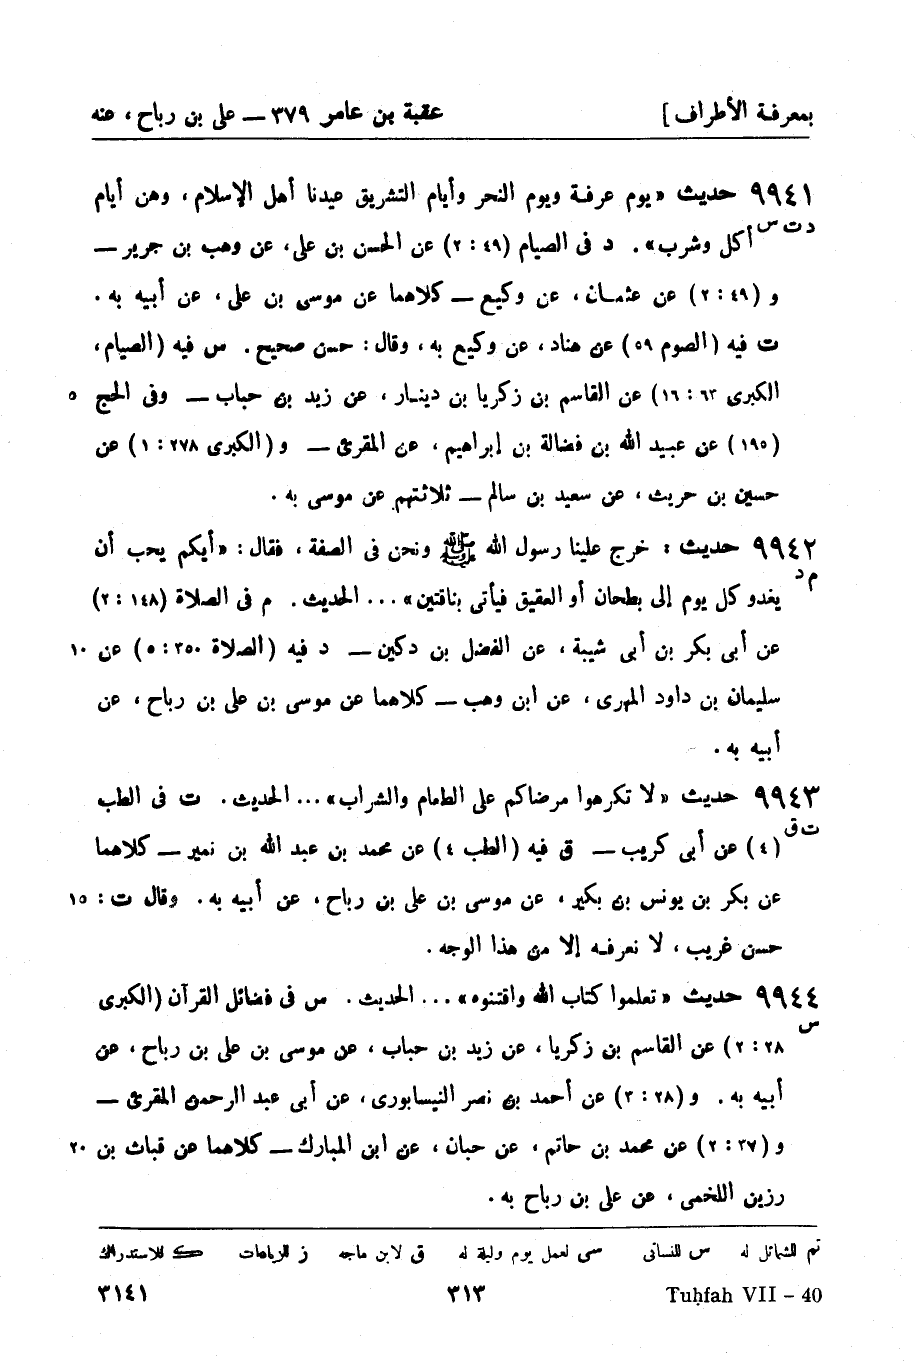 بمعرفة الأطراف ] عقبة بن عامر ٣٧٩ — على بن رباح ، عنه
٩٩٤١ حديث «يوم عرفة ويوم النحر وأيام التشريق عيدنا أهل الإسلام ، وهن أيام
د ت س أكل وشرب» . د فى الصيام (٤٩ : ٢) عن الحسن بن على، عن وهب بن جرير —
و (٤٩ : ٢) عن عثمـان ، عن وكيع — كلاهما عن موسى بن على ، عن أبيه به .
ت فيه (الصوم ٥٩) عن هناد ، عن وكيع به ، وقال : حسن صحيح . س فيه (الصيام ،
الكبرى ٦٣ : ١٦) عن القاسم بن زكريا بن دينـار ، عن زيد بن حباب — وفى الحج ٥
(١٩٥) عن عبيد الله بن فضالة بن إبراهيم ، عن المقرئ — و (الكبرى ٢٧٨ : ١) عن
حسين بن حريث ، عن سعيد بن سالم — ثلاثتهم عن موسى به .
٩٩٤٢ حديث : خرج علينا رسول الله ﷺ ونحن فى الصفة ، فقال : «أيكم يحب أن
م د يغدو كل يوم إلى بطحان أو العقيق فيأتى بناقتين» ... الحديث . م فى الصلاة (١٤٨ : ٢)
عن أبى بكر بن أبى شيبة ، عن الفضل بن دكين — د فيه (الصلاة ٣٥٠ : ٥) عن ١٠
سليمان بن داود المهرى ، عن ابن وهب — كلاهما عن موسى بن على بن رباح ، عن
أبيه به .
٩٩٤٣ حديث «لا تكرهوا مرضاكم على الطعام والشراب» ... الحديث . ت فى الطب
ت ق (٤) عن أبى كريب — ق فيه (الطب ٤) عن محمد بن عبد الله بن نمير — كلاهما
عن بكر بن يونس بن بكير ، عن موسى بن على بن رباح ، عن أبيه به . وقال ت : ١٥
حسن غريب ، لا نعرفـه إلا من هذا الوجه .
٩٩٤٤ حديث «تعلموا كتاب الله واقتنوه» ... الحديث . س فى فضائل القرآن (الكبرى
س ٢٨ : ٢) عن القاسم بن زكريا ، عن زيد بن حباب ، عن موسى بن على بن رباح ، عن
أبيه به . و (٢٨ : ٣) عن أحمد بن نصر النيسابورى ، عن أبى عبد الرحمن المقرئ —
و (٣٧ : ٢) عن محمد بن حاتم ، عن حبان ، عن ابن المبارك — كلاهما عن قباث بن ٢٠
رزين اللخمى ، عن على بن رباح به .
تم للشمائل له س للنسائى سى لعمل يوم وليلة له ق لابن ماجه ز للزيادات ك للاستدراك
٣١٤١ ٣١٣ Tuḥfah VII – 40